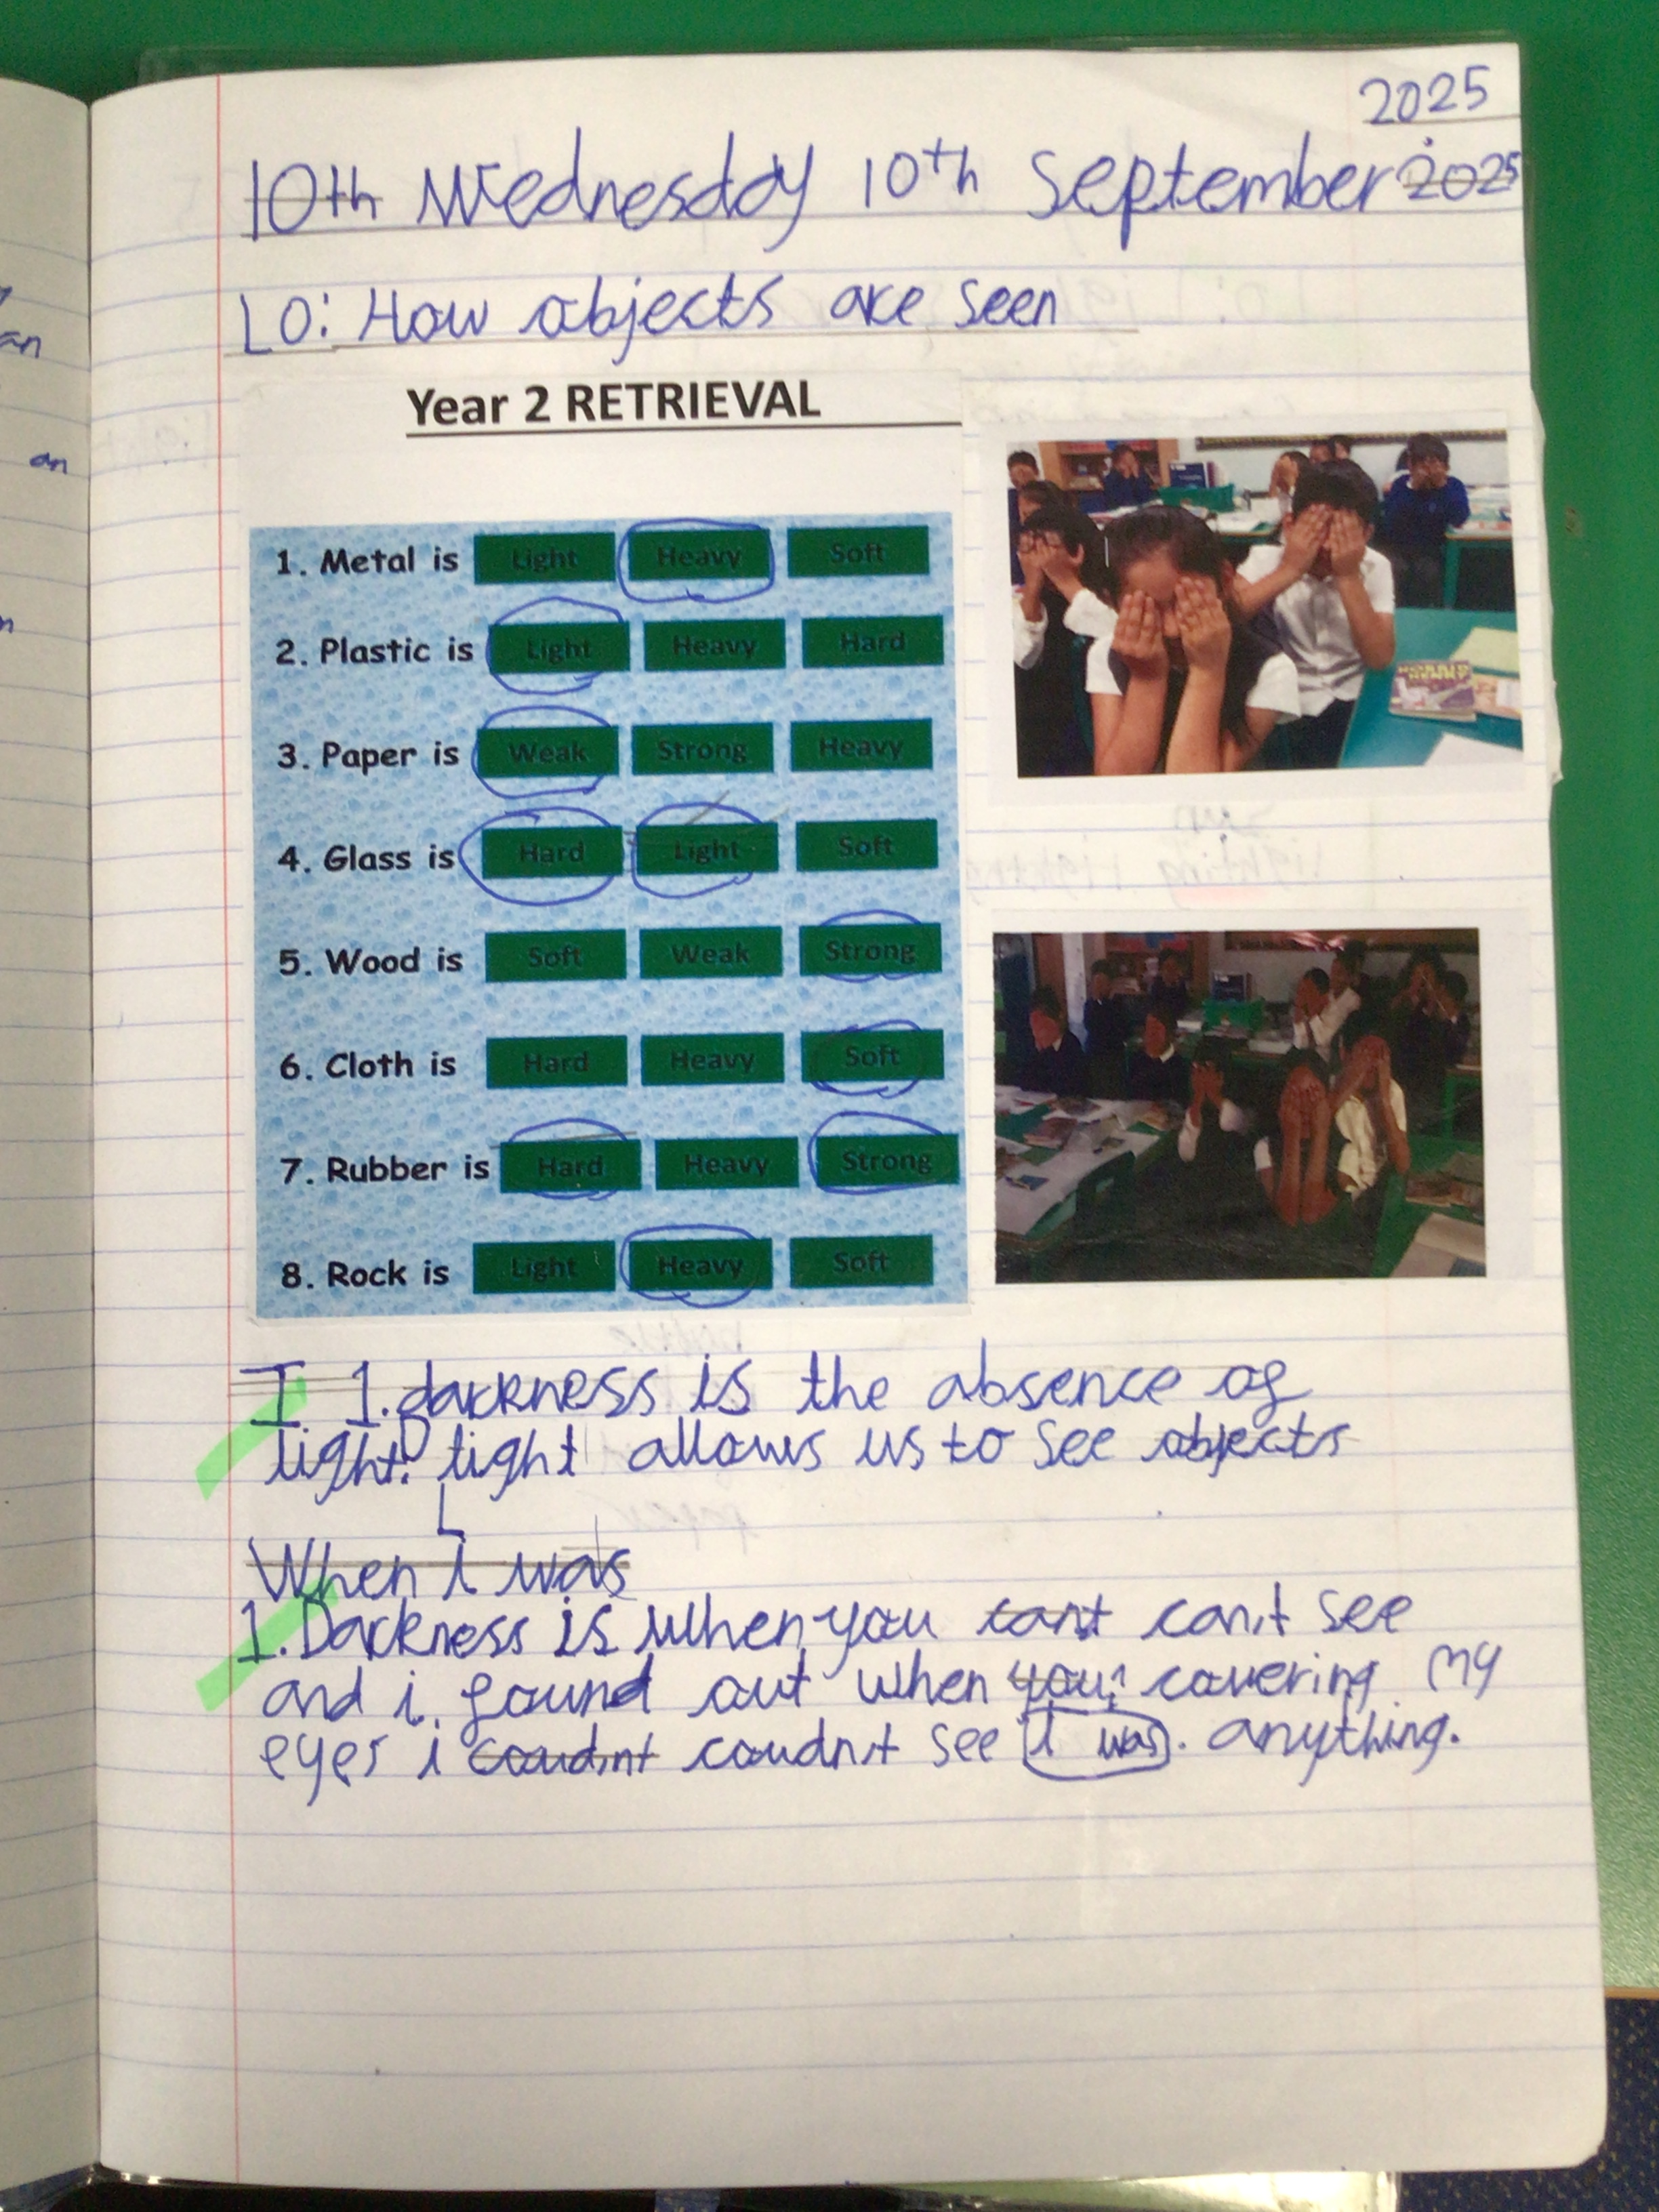 2025
10th Wednesday 10th September 2025
LO: How objects are seen
Year 2 RETRIEVAL
1. Metal is Light Heavy Soft
2. Plastic is Light Heavy Hard
3. Paper is Weak Strong Heavy
4. Glass is Hard Light Soft
5. Wood is Soft Weak Strong
6. Cloth is Hard Heavy Soft
7. Rubber is Hard Heavy Strong
8. Rock is Light Heavy Soft
I 1. darkness is the absence of
D
light. light allows us to see objects
L
When i was
1. Darkness is when you cant can't see
and i found out when you covering my
eyes i coudn't coudn't see i was. anything.
an
an
HORRID HENRY